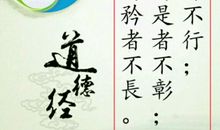 不行；
是者不彰；
矜者不長。
道德经